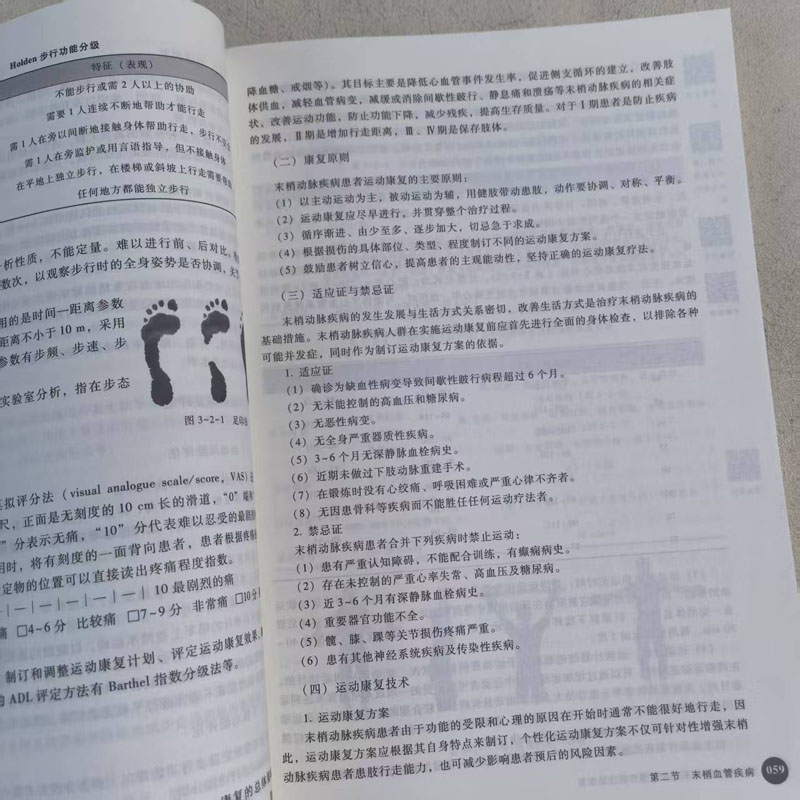 Holden 步行功能分级
特征（表现）
不能步行或需 2 人以上的协助
需要 1 人连续不断地帮助才能行走
需 1 人在旁以间断地接触身体帮助行走，步行不安
需 1 人在旁监护或用言语指导，但不接触身体
在平地上独立步行，在楼梯或斜坡上行走需要
任何地方都能独立步行
析性质，不能定量。难以进行前、后对比，
数次，以观察步行时的全身姿势是否协调，
用的是时间—距离参数
距离不小于 10 m，采用
参数有步频、步速、步
实验室分析，指在步态
图 3-2-1 足印
拟评分法（visual analogue scale/score, VAS）
尺，正面是无刻度的 10 cm 长的滑道，“0”端
”分表示无痛，“10”分代表难以忍受的最剧
用时，将有刻度的一面背向患者，患者根据疼
定物的位置可以直接读出疼痛程度指数。
—|—|—|—|—| 10 最剧烈的痛
痛 □4~6分 比较痛 □7~9分 非常痛 □10分
制订和调整运动康复计划、评定运动康复效果、
的 ADL 评定方法有 Barthel 指数分级法等。
降血糖、戒烟等）。其目标主要是降低心血管事件发生率，促进侧支循环的建立，改善肢
体供血，减轻血管病变，减缓或消除间歇性跛行、静息痛和溃疡等末梢动脉疾病的相关症
状，改善运动功能，防止功能下降，减少残疾，提高生存质量。对于Ⅰ期患者是防止疾病
的发展，Ⅱ期是增加行走距离，Ⅲ、Ⅳ期是保存肢体。
（二）康复原则
末梢动脉疾病患者运动康复的主要原则：
（1）以主动运动为主，被动运动为辅，用健肢带动患肢，动作要协调、对称、平衡。
（2）运动康复应尽早进行。并贯穿整个治疗过程。
（3）循序渐进、由少至多、逐步加大，切忌急于求成。
（4）根据损伤的具体部位、类型、程度制订不同的运动康复方案。
（5）鼓励患者树立信心，提高患者的主观能动性，坚持正确的运动康复疗法。
（三）适应证与禁忌证
末梢动脉疾病的发生发展与生活方式关系密切，改善生活方式是治疗末梢动脉疾病的
基础措施。末梢动脉疾病人群在实施运动康复前应首先进行全面的身体检查，以排除各种
可能并发症，同时作为制订运动康复方案的依据。
1. 适应证
（1）确诊为缺血性病变导致间歇性跛行病程超过 6 个月。
（2）无未能控制的高血压和糖尿病。
（3）无恶性病变。
（4）无全身严重器质性疾病。
（5）3~6 个月无深静脉血栓病史。
（6）近期未做过下肢动脉重建手术。
（7）在锻炼时没有心绞痛、呼吸困难或严重心律不齐者。
（8）无因患骨科等疾病而不能胜任任何运动疗法者。
2. 禁忌证
末梢动脉疾病患者合并下列疾病时禁止运动：
（1）患有严重认知障碍，不能配合训练，有癫痫病史。
（2）存在未控制的严重心率失常、高血压及糖尿病。
（3）近 3~6 个月有深静脉血栓病史。
（4）重要器官功能不全。
（5）髋、膝、踝等关节损伤疼痛严重。
（6）患有其他神经系统疾病及传染性疾病。
（四）运动康复技术
1. 运动康复方案
末梢动脉疾病患者由于功能的受限和心理的原因在开始时通常不能很好地行走，因
此，运动康复方案应根据其自身特点来制订，个性化运动康复方案不仅可针对性增强末梢
动脉疾病患者患肢行走能力，也可减少影响患者预后的风险因素。
第二节 末梢血管疾病 059